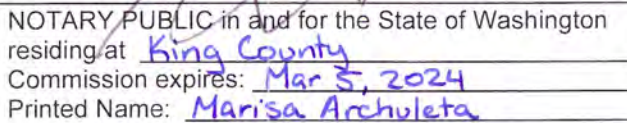 NOTARY PUBLIC in and for the State of Washington
residing at King County
Commission expires: Mar 5, 2024
Printed Name: Marisa Archuleta